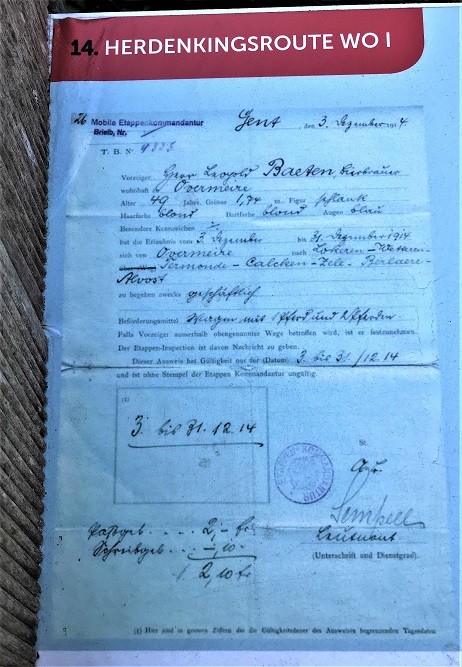 14. HERDENKINGSROUTE WO I
26 Mobile Etappenkommandantur
Brielb. Nr.
Gent, den 3. Dezember 1914.
T. B. Nº 9333
Vorzeiger Herr Leopold Baeten Bierbrauer
wohnhaft in Overmeire
Alter 49 Jahre, Grösse 1,74 m. Figur schlank
Haarfarbe blond Bartfarbe blond Augen blau
Besondere Kennzeichen
hat die Erlaubnis vom 3. Dezember bis 31. Dezember 1914
sich von Overmeire nach Lokeren-Wetteren-
Termonde-Calcken-Zele-Berlaere-
Alost
zu begeben zwecks geschäftlich
Beförderungsmittel) Wagen mit 1 Pferd und 2 Pferden
Falls Vorzeiger ausserhalb obengenannter Wege betroffen wird, ist er festzunehmen.
Der Etappen-Inspection ist davon Nachricht zu geben.
Dieser Ausweis hat Gültigkeit nur für (Datum) 3. bis 31./12.14
und ist ohne Stempel der Etappen Kommandantur ungültig.
(1)
3. bis 31.12.14
St.
Sempell
Leutnant
(Unterschrift und Dienstgrad).
Paßgeb. . . . 2,- fr.
Schreibgeb. . . -,10.
2,10 fr
(1) Hier sind in grossen Ziffern die die Gültigkeitsdauer des Ausweises begrenzenden Tagesdaten